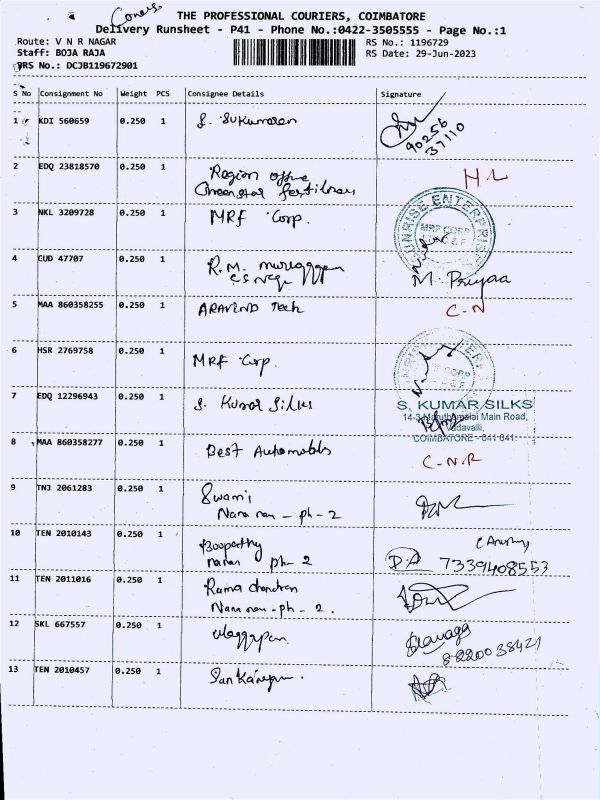 THE PROFESSIONAL COURIERS, COIMBATORE
Delivery Runsheet - P41 - Phone No.:0422-3505555 - Page No.:1
Route: V N R NAGAR RS No.: 1196729
Staff: BOJA RAJA RS Date: 29-Jun-2023
DRS No.: DCJB119672901
S No Consignment No Weight PCS Consignee Details Signature
1 KDI 560659 0.250 1 S. Sukumaran
90256
37110
2 EDQ 23818570 0.250 1 Region office
Greenstar fertilisers H L
3 NKL 3209728 0.250 1 MRF Corp. SUNRISE ENTERPRISE
MRF CORP
C & F
4 CUD 47707 0.250 1 R.M. M. Priyaa
5 MAA 860358255 0.250 1 ARAVIND Tech C - N
6 HSR 2769758 0.250 1 MRF Corp.
7 EDQ 12296943 0.250 1 S. Kumar Silks S. KUMAR SILKS
14-3, Maruthamalai Main Road,
Vadavalli,
COIMBATORE - 641 041.
8 MAA 860358277 0.250 1 Best Automobls C - N R
9 TNJ 2061283 0.250 1 Swami
Nana nan - ph - 2
10 TEN 2010143 0.250 1 Boopathy
nanan ph - 2 7339408553
11 TEN 2011016 0.250 1 Rama chandran
Nana nan - ph - 2.
12 SKL 667557 0.250 1 alaggapan.
8220038421
13 TEN 2010457 0.250 1